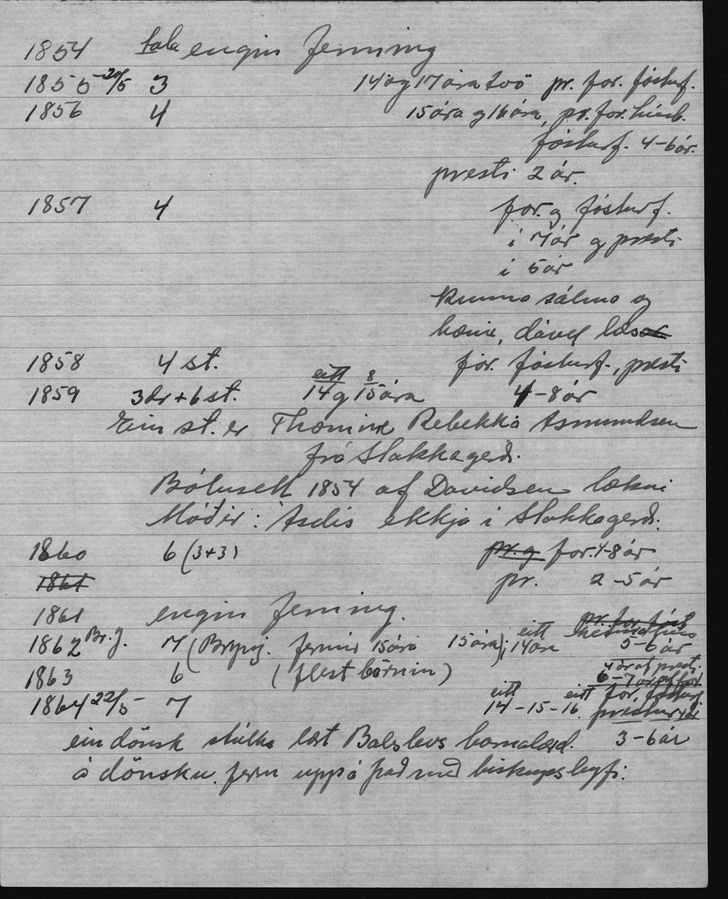 1854 engin ferming
1855 20/5 3 14 og 17 ára tvö pr. for. fósturf.
1856 4 15 ára og 16 ára, pr. for. húsb.
fósturf. 4-6 ár.
presti 2 ár.
1857 4 for. og fósturf.
í 7 ár og presti
í 5 ár
kunna sálma og
bænir, dável læsar
1858 4 st. for. fósturf., presti
1859 3 dr + 6 st. eitt 14 og 8 15 ára 4-8 ár
Ein st. er Thomine Rebekka Asmundsen
frá Stakkagerði.
Bólusett 1854 af Davidsen lækni
Móðir: Ásdís ekkja í Stakkagerði.
1860 6 (3+3) pr. og for. 4-8 ár
1861 pr. 2-5 ár
1861 engin ferming.
1862 Br. J. 7 (Brynj. fermir 15 ára 15 ára; eitt 14 ára pr. for. húsb. 5-6 ár
1863 6 (flest börnin) 4 ár af presti 6-7 ár af for.
1864 22/5 7 eitt 14-15-16 eitt for. fósturf. prestur
ein dönsk stúlka lært Balslevs barnalærd. 3-6 ár
á dönsku. ferm uppá það með biskupsleyfi.